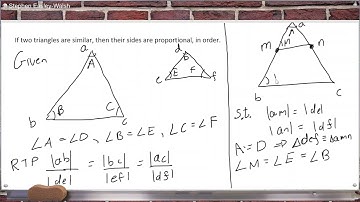 Stephen Easley-Walsh
If two triangles are similar, then their sides are proportional, in order.
Given
a
A
B
C
b
c
d
E
F
e
f
∠A = ∠D, ∠B = ∠E, ∠C = ∠F
RTP |ab|/|de| = |bc|/|ef| = |ac|/|df|
a
A
m
M
n
b
c
s.t. |am| = |de|
|an| = |df|
A = D ⇒ Δdef = Δamn
∠M = ∠E = ∠B